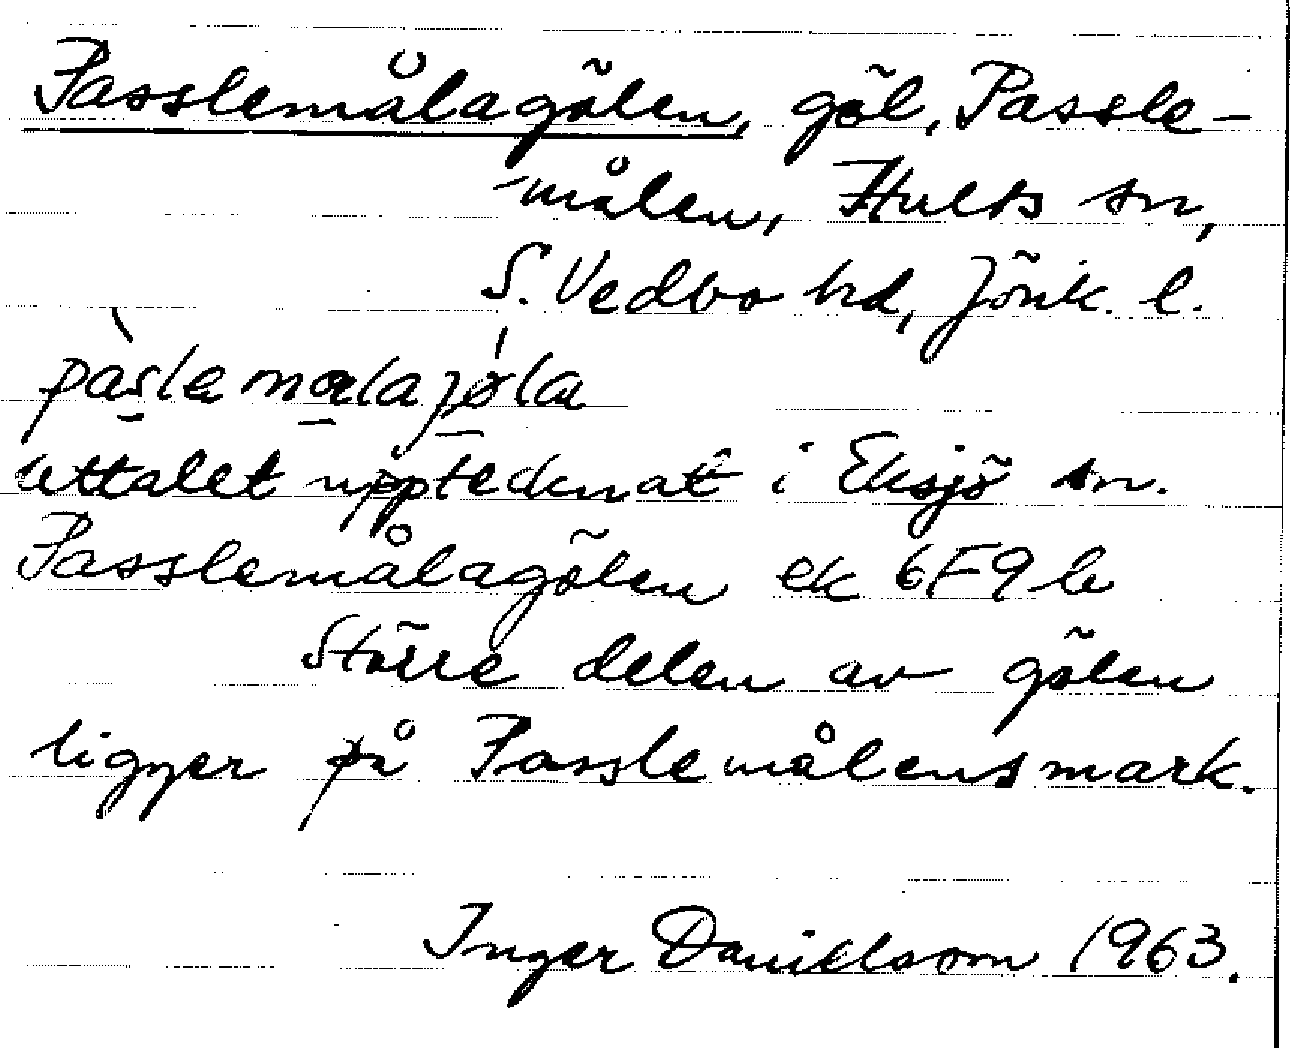 Passlemålagölen, göl, Passle-
målen, Hults sn,
S. Vedbo hd, Jönk. l.
uttalet upptecknat i Eksjö sn.
Passlemålagölen ek 6F9b
Större delen av gölen
ligger på Passlemålens mark.
Inger Danielsson 1963.